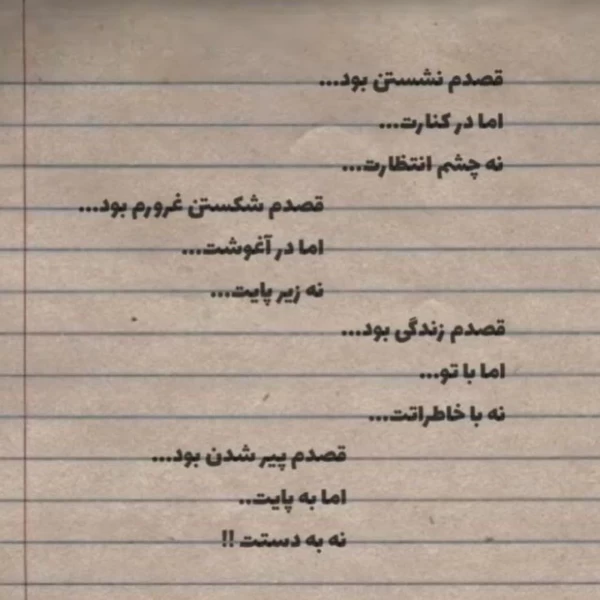 قصدم نشستن بود...
اما در کنارت...
نه چشم انتظارت...
قصدم شکستن غرورم بود...
اما در آغوشت...
نه زیر پایت...
قصدم زندگی بود...
اما با تو...
نه با خاطراتت...
قصدم پیر شدن بود...
اما به پایت..
نه به دستت !!